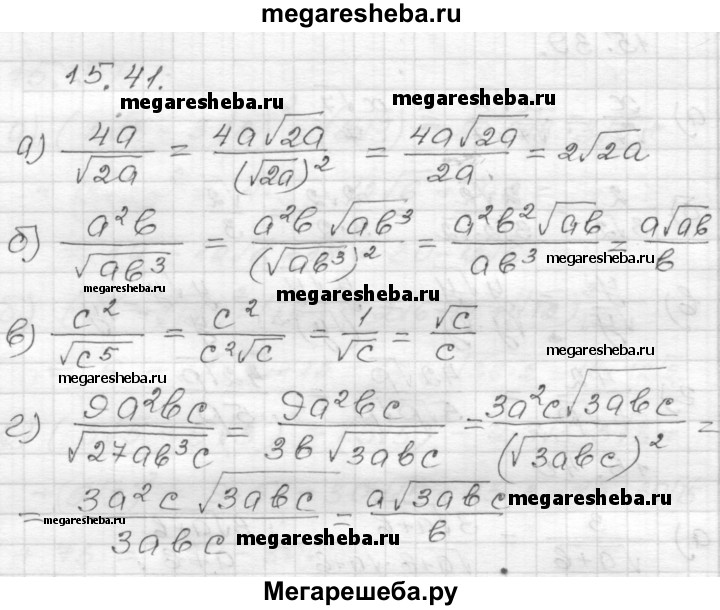 megaresheba.ru
15.41.
megaresheba.ru megaresheba.ru
а) 4a/√(2a) = 4a√(2a)/(√(2a))² = 4a√(2a)/2a = 2√(2a)
б) a²b/√(ab³) = a²b√(ab³)/(√(ab³))² = a²b²√(ab)/ab³ = a√(ab)/b
megaresheba.ru megaresheba.ru megaresheba.ru
в) c²/√(c⁵) = c²/(c²√c) = 1/√c = √c/c
megaresheba.ru megaresheba.ru
г) 9a²bc/√(27ab³c) = 9a²bc/(3b√(3abc)) = 3a²c√(3abc)/(√(3abc))² =
= 3a²c√(3abc)/3abc = a√(3abc)/b
megaresheba.ru megaresheba.ru megaresheba.ru
Мегарешеба.ру